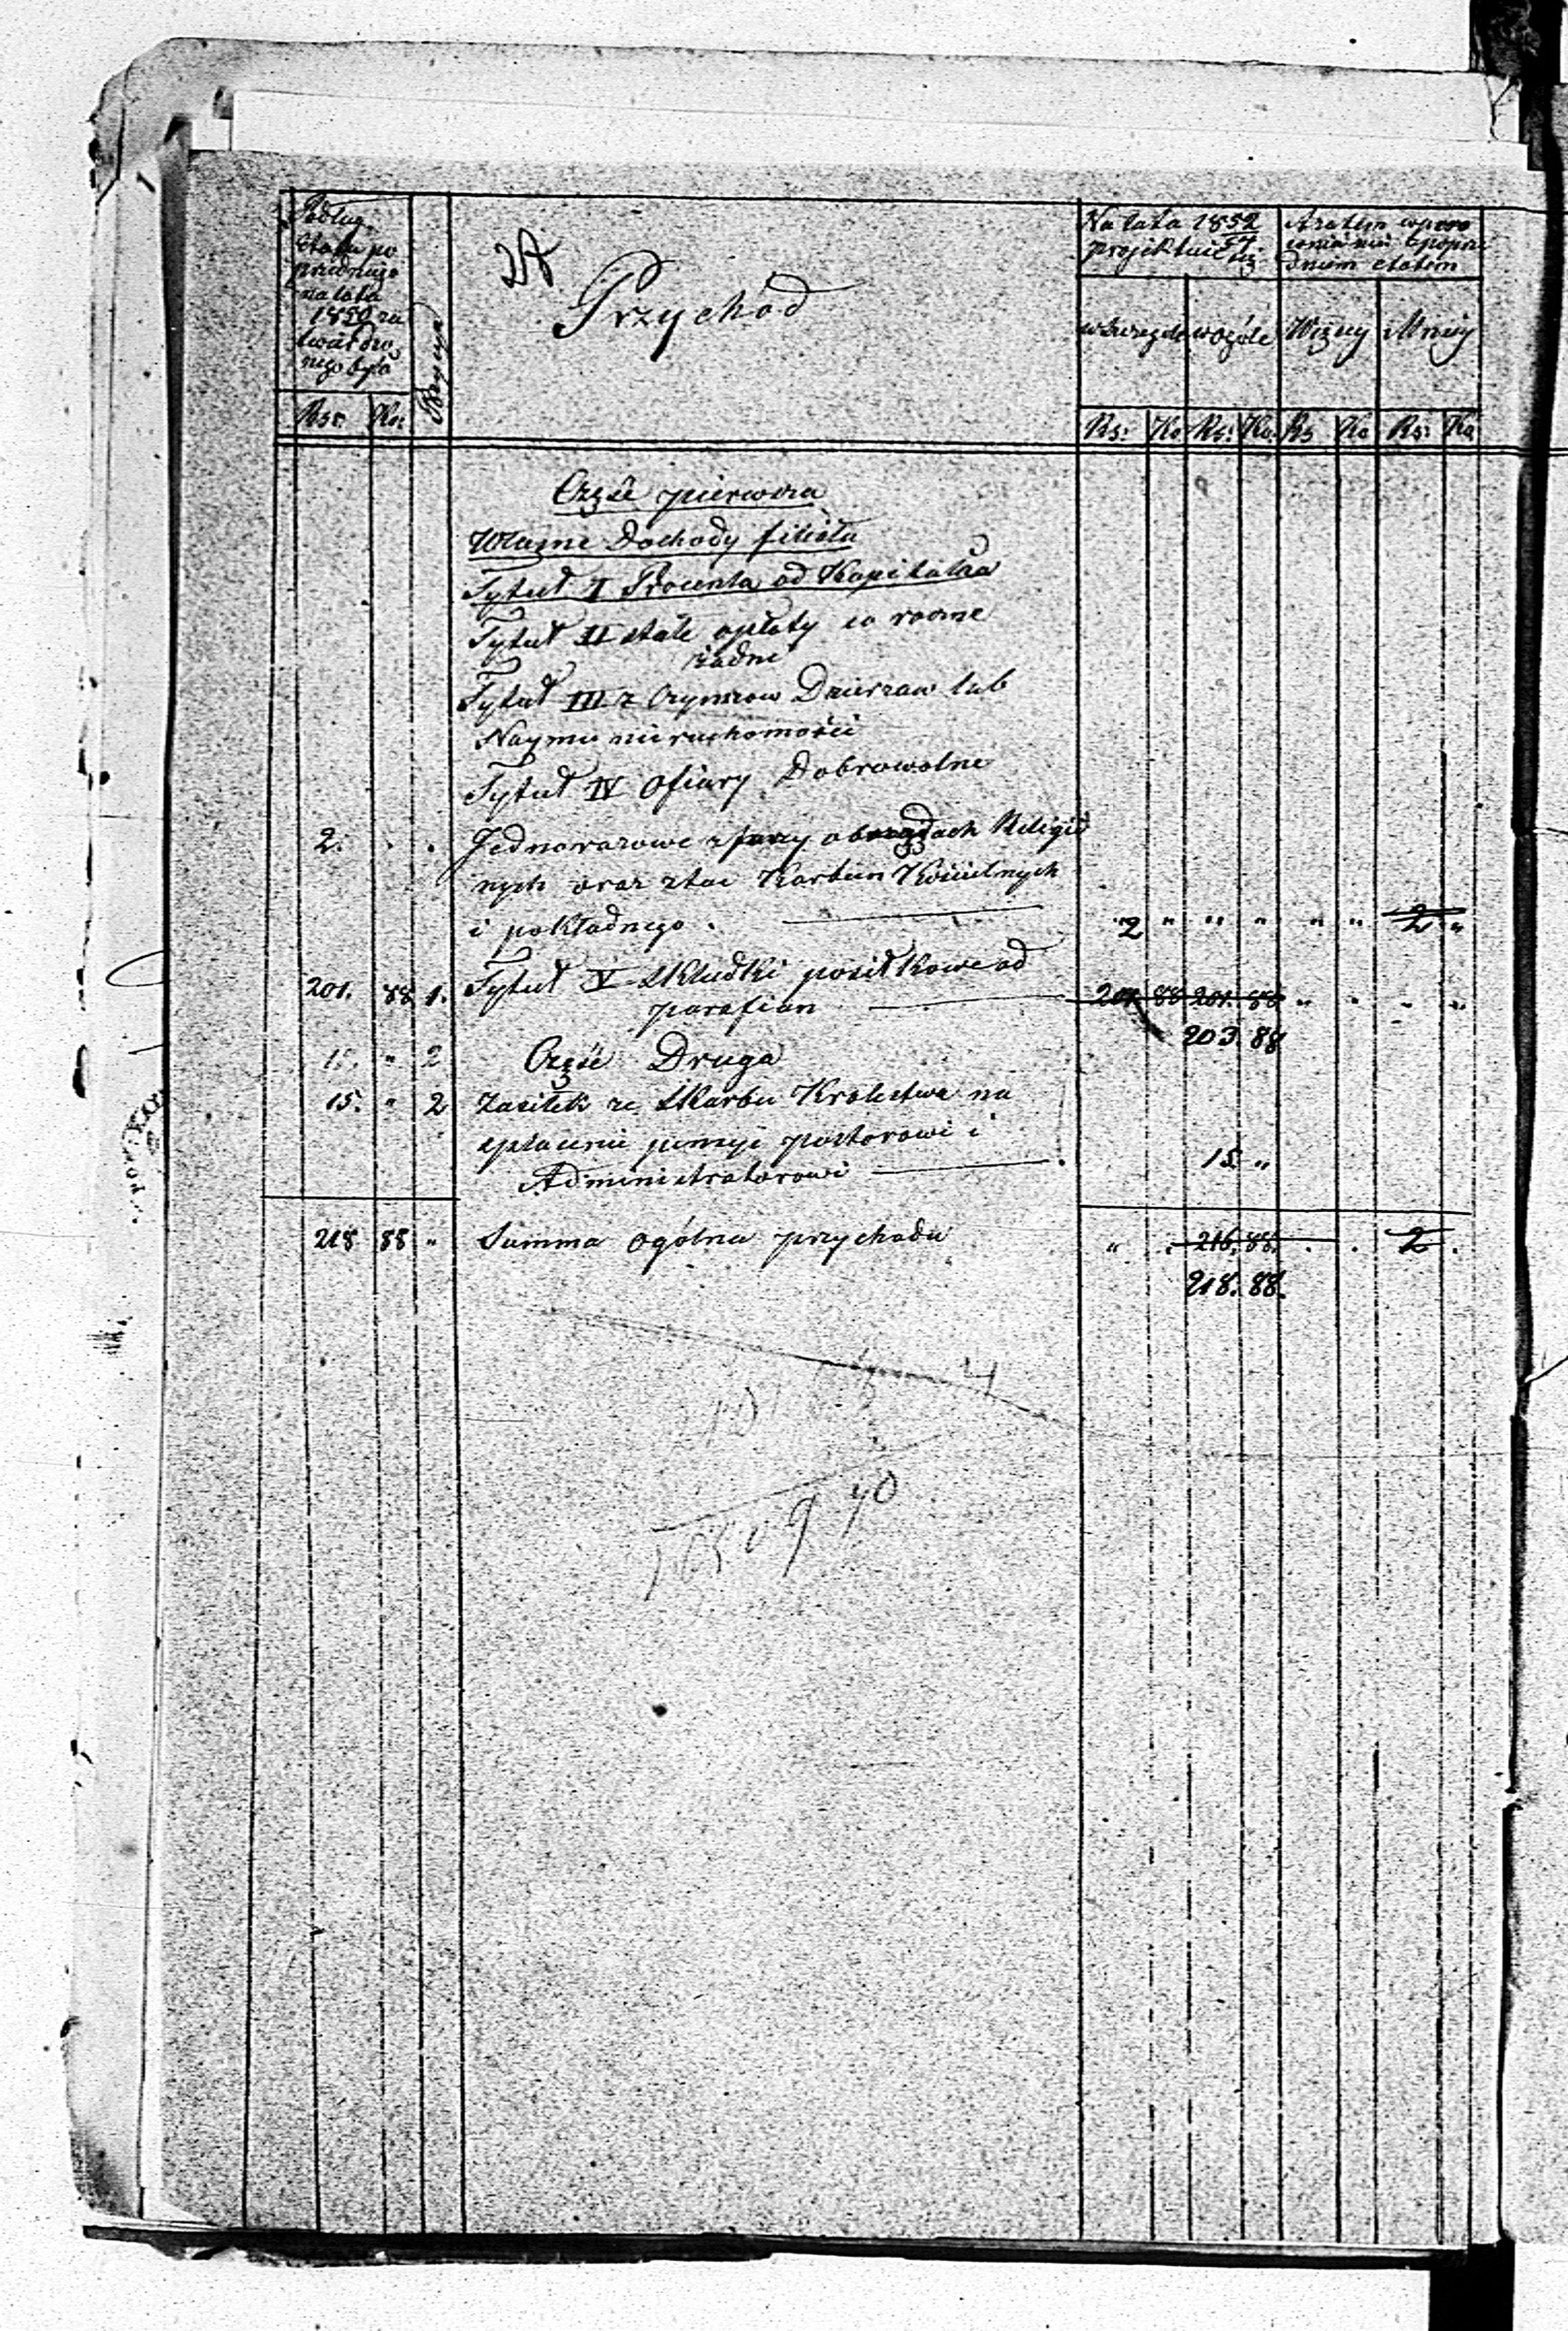 Podług
Etatu po
przedniego
na lata
1850 za
twardzo
nego było
Rsr. Ko:
Pozycya
Przychód
Na lata 1852/54
projektuie się
wszczególe wogóle
A zatem wporo
wnaniu z poprze
dnim etatem
Więcey Mniey
Rs: Ko Rs: Ko. Rs Ko Rs: Ko
Część pierwsza
Własne Dochody filiału
Tytuł I Procenta od Kapitałów
Tytuł II stałe opłaty co roczne
żadne
Tytuł III z Czynszow Dzierzaw lub
Naymu nieruchomości
Tytuł IV Ofiary Dobrowolne
2. . . Jednorazowe przy obrzędach Religii
nych oraz z tac Karbon Kościelnych
i pokładnego . 2 " " " " " 2 "
201. 88 1. Tytuł V Składki posiłkowe od
parafian 201. 88 201. 88 " . " "
203. 88
15. " 2 Część Druga
15. " 2 Zasiłek ze Skarbu Krolestwa na
opłacenie pensyi pastorowi i
Administratorowi 15 "
218 88 " Summa ogólna przychodu " . 216. 88. . . 2 .
218. 88.